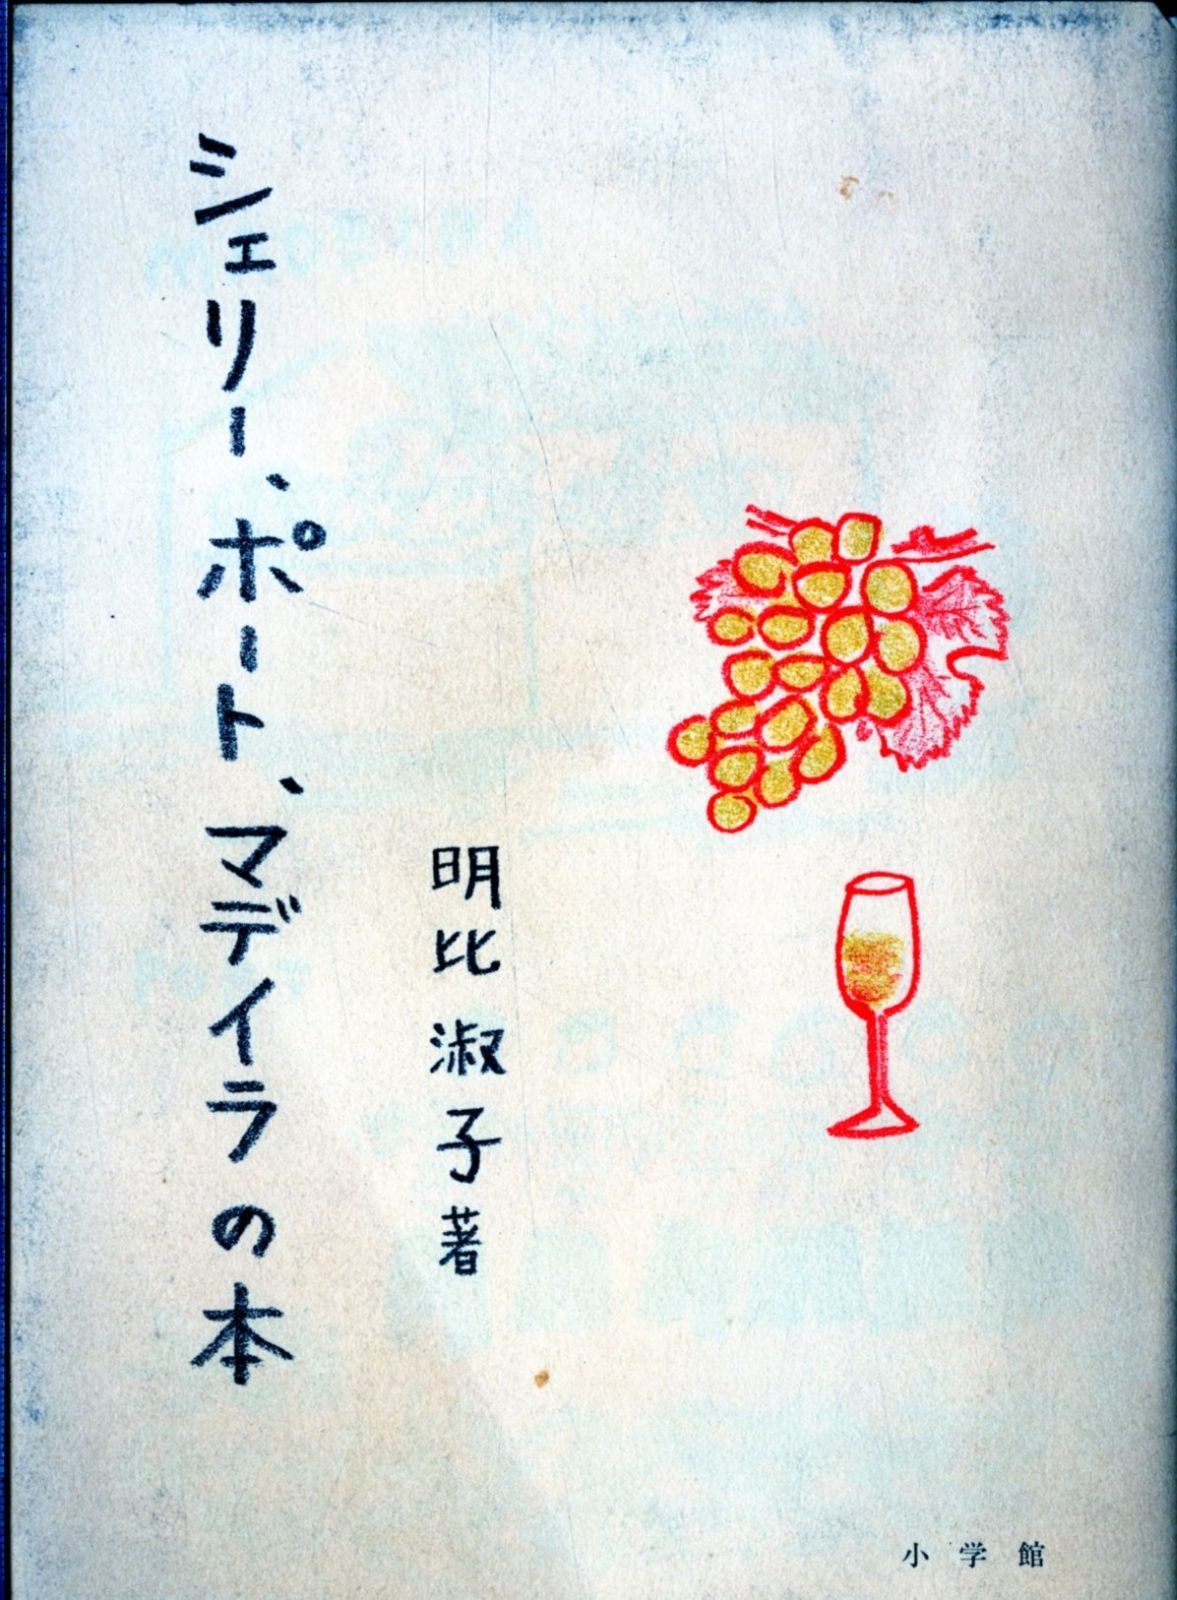 シェリー、ポート、マデイラの本
明比淑子著
小学館